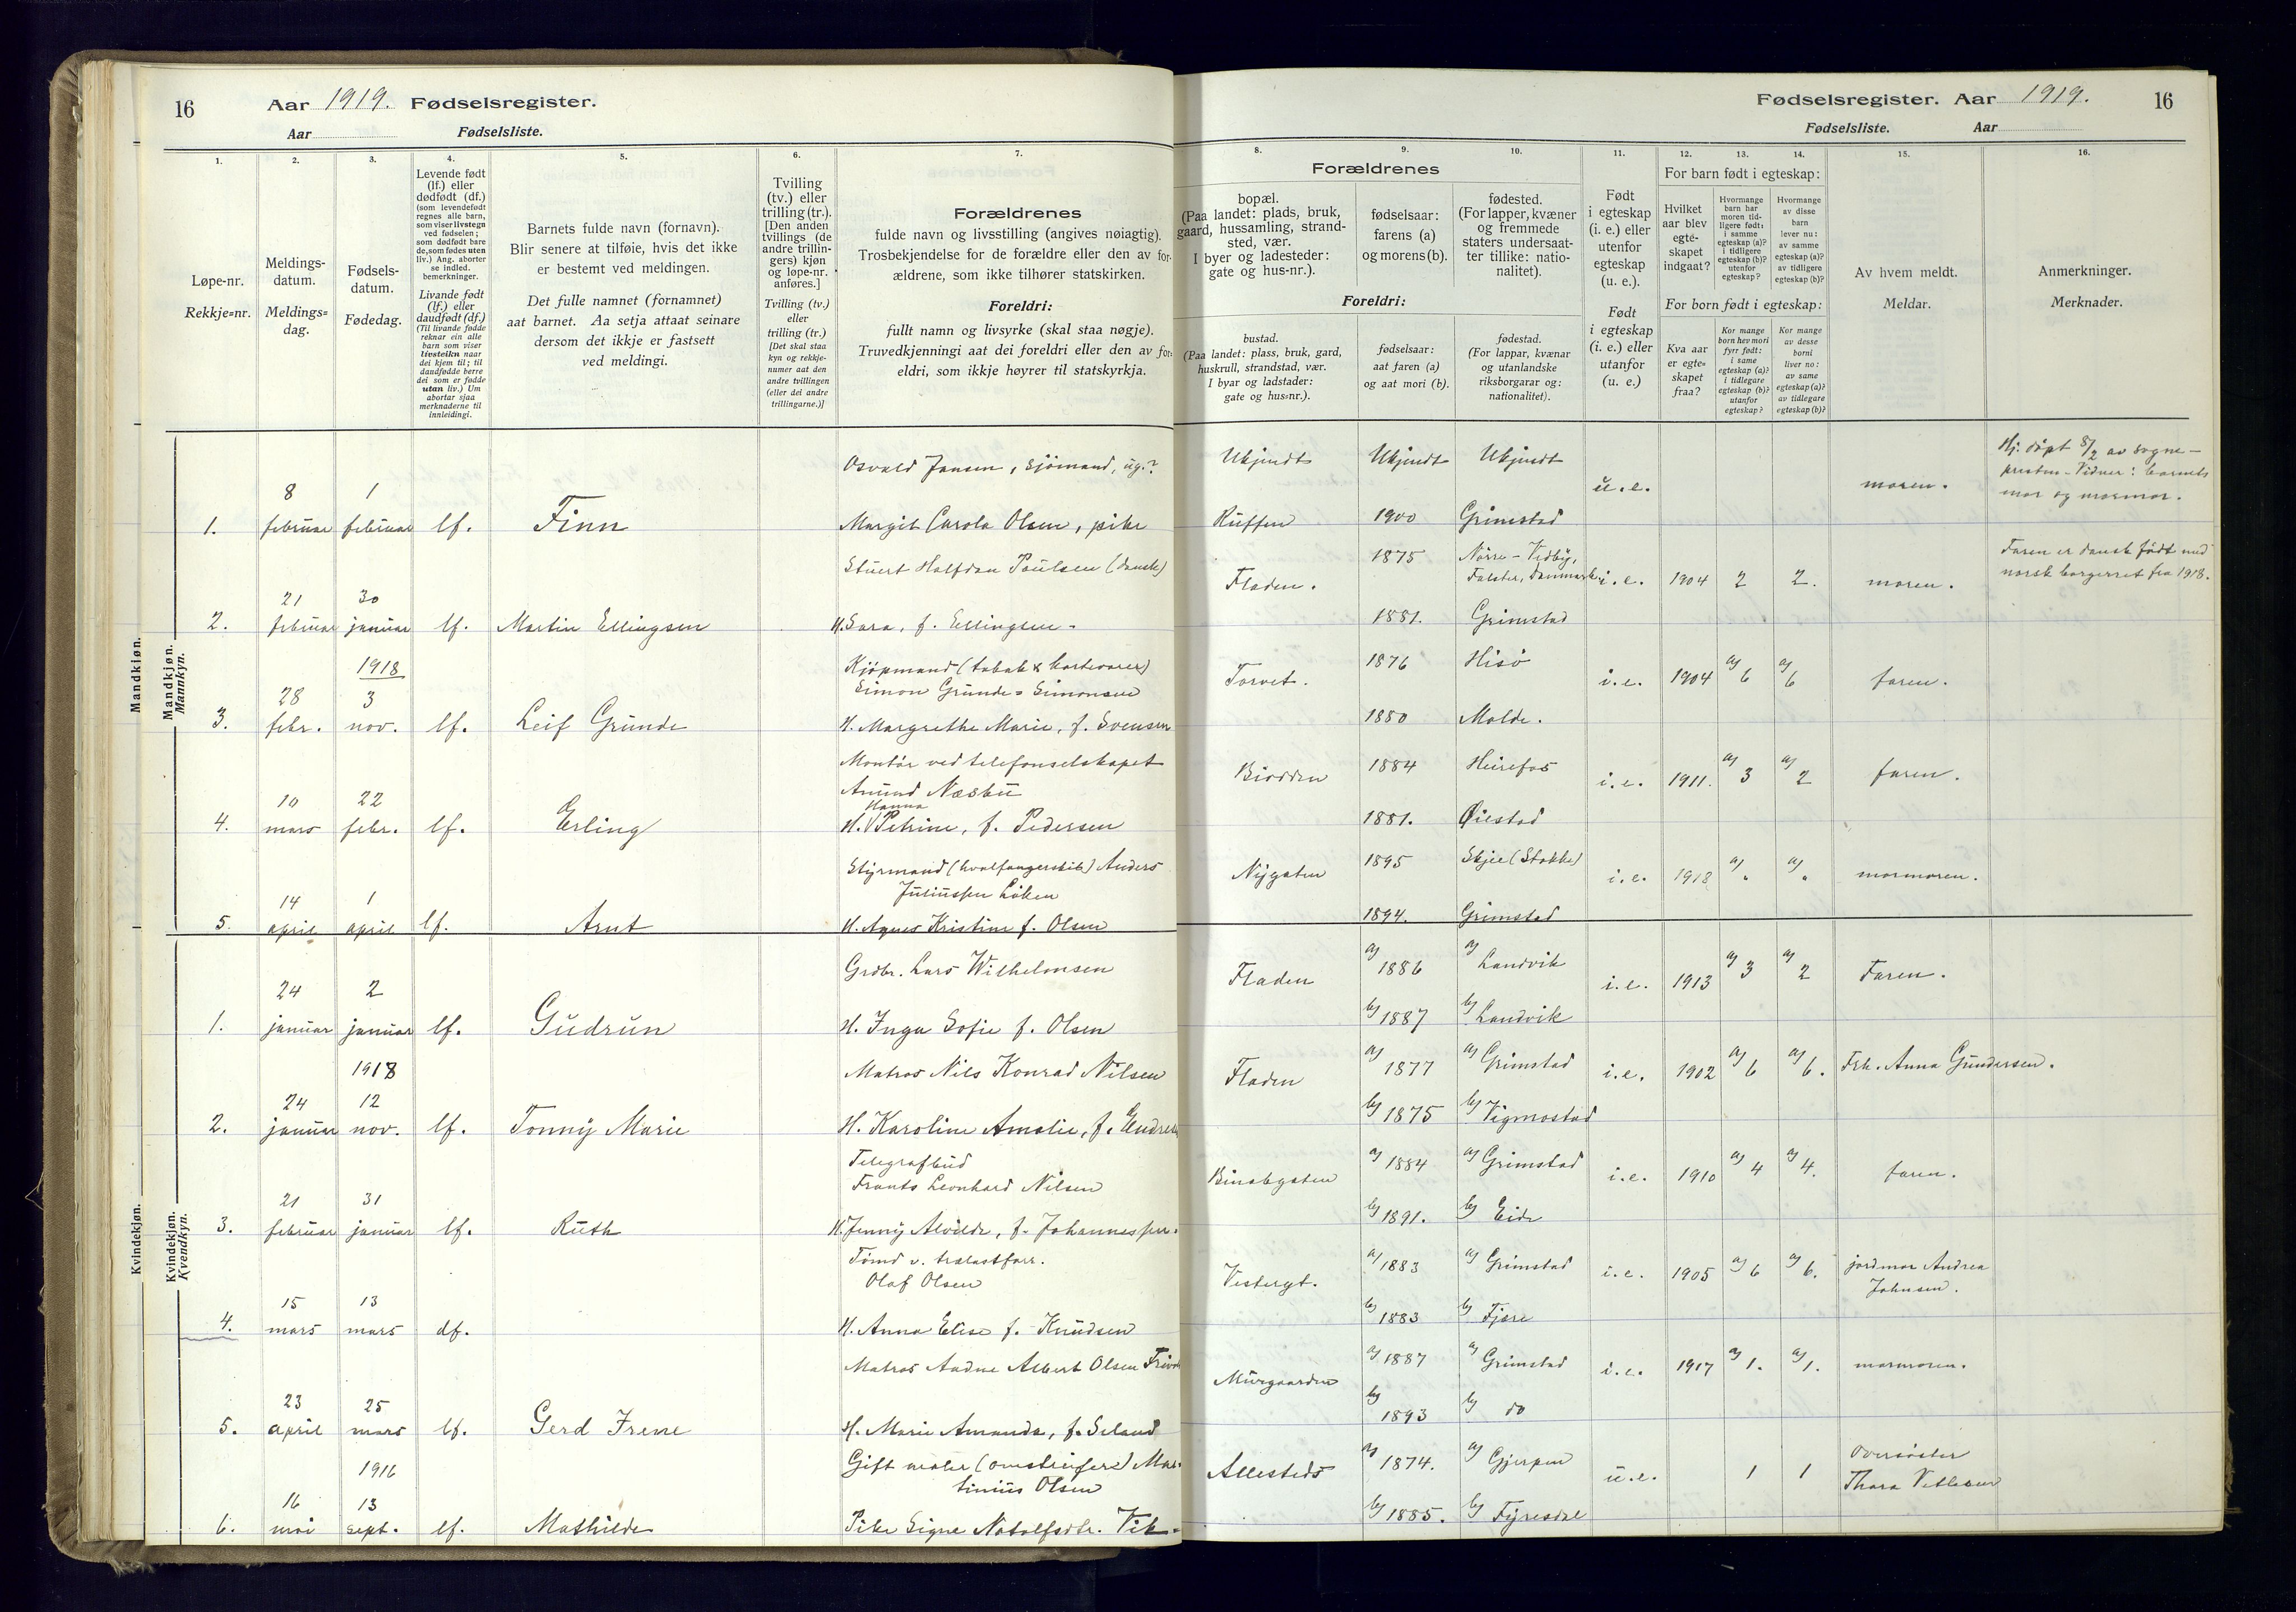 16
Aar 1919. Fødselsregister.
Aar
Fødselsliste.
1.
2.
3.
4.
5.
6.
7.
Løpe-nr.
Rekkje=nr.
Meldings-
datum.
Meldings=
dag.
Fødsels-
datum.
Fødedag.
Levende født
(lf.) eller
dødfødt (df.)
(som levendefødt
regnes alle barn,
som viser livstegn
ved fødselen;
som dødfødt bare
de, som fødes uten
liv.) Ang. aborter
se indled.
bemerkninger.
Livande født
(lf.) eller
daudfødt (df.)
(Til livande fødde
reknar ein alle
barn som viser
livsteikn naar
dei kjem til; til
daudfødde berre
dei som er fødde
utan liv.) Um
abortar sjaa
merknaderne til
innleidingi.
Barnets fulde navn (fornavn).
Blir senere at tilføie, hvis det ikke
er bestemt ved meldingen.
Det fulle namnet (fornamnet)
aat barnet. Aa setja attaat seinare
dersom det ikkje er fastsett
ved meldingi.
Tvilling
(tv.) eller
trilling (tr.).
[Den anden
tvillings (de
andre trillin-
gers) kjøn
og løpe-nr.
anføres.]
Tvilling (tv.)
eller
trilling (tr.)
[Det skal staa
kyn og rekkje-
numer aat den
andre tvillingen
(eller dei andre
trillingarne.)]
Forældrenes
fulde navn og livsstilling (angives nøiagtig).
Trosbekjendelse for de forældre eller den av for-
ældrene, som ikke tilhører statskirken.
Foreldri:
fullt namn og livsyrke (skal staa nøgje).
Truvedkjenningi aat dei foreldri eller den av for=
eldri, som ikkje høyrer til statskyrkja.
Mandkjøn.
Mandkjøn.
Mannkyn.
Osvald Jansen, sjømand, ug.?
8 1
1. februar februar lf. Finn Margit Carola Olsen, pike
Stuert Halfdan Poulsen (dansk)
21 30
2. februar januar lf. Martin Ellingsen H. Sara, f. Ellingsen.
1918
Kjøpmand (tobak & kortevarer)
Simon Grunde = Simonsen
28 3
3. febr. nov. lf. Leif Grunde H. Margrethe Marie, f. Svensen
Montør ved telefonselskapet
Amund Næsbu
10 22 Hanna
4. mars febr. lf. Erling H. Petrine, f. Pedersen
Styrmand (hvalfangerskib) Anders
Juliussen Løken
14 1
5. april april lf. Arnt H. Agnes Kristine f. Olsen
Kvindekjøn.
Kvindekjøn.
Kvendkyn.
Grdbr. Lars Wilhelmsen
24 2
1. januar januar lf. Gudrun H. Inga Sofie f. Olsen
1918
Matros Nils Konrad Nilsen
24 12
2. januar nov. lf. Tonny Marie H. Karoline Amalie, f.
Telegrafbud
Frants Leonhard Nilsen
21 31
3. februar januar lf. Ruth H. Jenny Alvilde, f. Johannessen.
Tømd v. trælastforr.
Olaf Olsen
15 13
4. mars mars df. H. Anna Elise f. Knudsen
Matros Audne Albert Olsen
23 25
5. april mars lf. Gerd Irene H. Marie Amanda, f. Seland
1916
Gift maler (omstreifere) Mar-
tinius Olsen
16 13
6. mai sept. lf. Mathilde Pike Signe Notolfsdtr. Vik
Fødselsregister. Aar 1919.
16
Fødselsliste.
Aar
8.
9.
10.
11.
12.
13.
14.
15.
16.
Forældrenes
bopæl.
(Paa landet: plads, bruk,
gaard, hussamling, strand-
sted, vær.
I byer og ladesteder:
gate og hus-nr.).
fødselsaar:
farens (a)
og morens (b).
fødested.
(For lapper, kvæner
og fremmede
staters undersaat-
ter tillike: natio-
nalitet).
Foreldri:
bustad.
(Paa landet: plass, bruk, gard,
huskrull, strandstad, vær.
I byar og ladstader:
gate og hus=nr.).
fødselsaar:
aat faren (a)
og aat mori (b).
fødestad.
(For lappar, kvænar
og utanlandske
riksborgarar og:
nationalitet).
Født
i egteskap
(i. e.) eller
utenfor
egteskap
(u. e.).
Født
i egteskap
(i. e.) eller
utanfor
(u. e.)
For barn født i egteskap:
Hvilket
aar blev
egte-
skapet
indgaat?
Hvormange
barn har
moren tid-
ligere født:
i samme
egteskap (a)?
i tidligere
egteskap (b)?
utenfor
egteskap?
Hvormange
av disse
barn
lever nu:
av samme
egteskap (a)?
av tidligere
egteskap (b)?
For born født i egteskap:
Kva aar
er egte-
skapet
fraa?
Kor mange
born hev mori
fyrr født:
i same
egteskap (a)?
i tidlegare
egteskap (b)?
utanfor
egteskap?
Kor mange
av desse
borni
liver no:
av same
egteskap (a)?
av tidlegare
egteskap (b)?
Av hvem meldt.
Meldar.
Anmerkninger.
Merknader.
Ukjendt Ukjendt Ukjendt
u.e. moren.
Hj. døpt 8/2 av sogne-
presten - Vidner: barnets
mor og mormor.
Ruffen 1900 Grimstad
1875 Nørre-Vedby,
Falster, Danmark
Fladen. i.e. 1904 2 2. moren.
Faren er dansk født med
norsk borgerret fra 1918.
1881. Grimstad
Torvet. 1876 Hisø i.e. 1904 a) 6 a) 6 faren.
1880 Molde.
Biodden 1884 Heirefos i.e. 1911. a) 3 a) 2 faren.
1881. Øiestad
Nygaten 1895 Skjee (Stokke) i.e. 1918 a) „ a) „ mormoren.
1894. Grimstad
Fladen a) 1886 a) Landvik i.e. 1913 a) 3 a) 2 Faren.
b) 1887 b) Landvik
Fladen a) 1877 a) Grimstad i.e. 1902 a) 6 a) 6. Frk. Anna Gundersen.
b) 1875 b) Vigmostad
Binabgaten a) 1884 a) Grimstad i.e. 1910 a) 4 a) 4. faren.
b) 1891. b) Eide
Vestergt. a) 1883 a) Grimstad i.e. 1905 a) 6 a) 6. jordmor Andrea
Johnsen.
b) 1883 b) Fjære
Murgaarden a) 1887 a) Grimstad i.e. 1917 a) 1. a) 1. mormoren.
b) 1893 b) do
Allesteds a) 1874. a) Gjerpen u.e. 1 1 Oversøster
Thora
b) 1885. b) Fyresdal